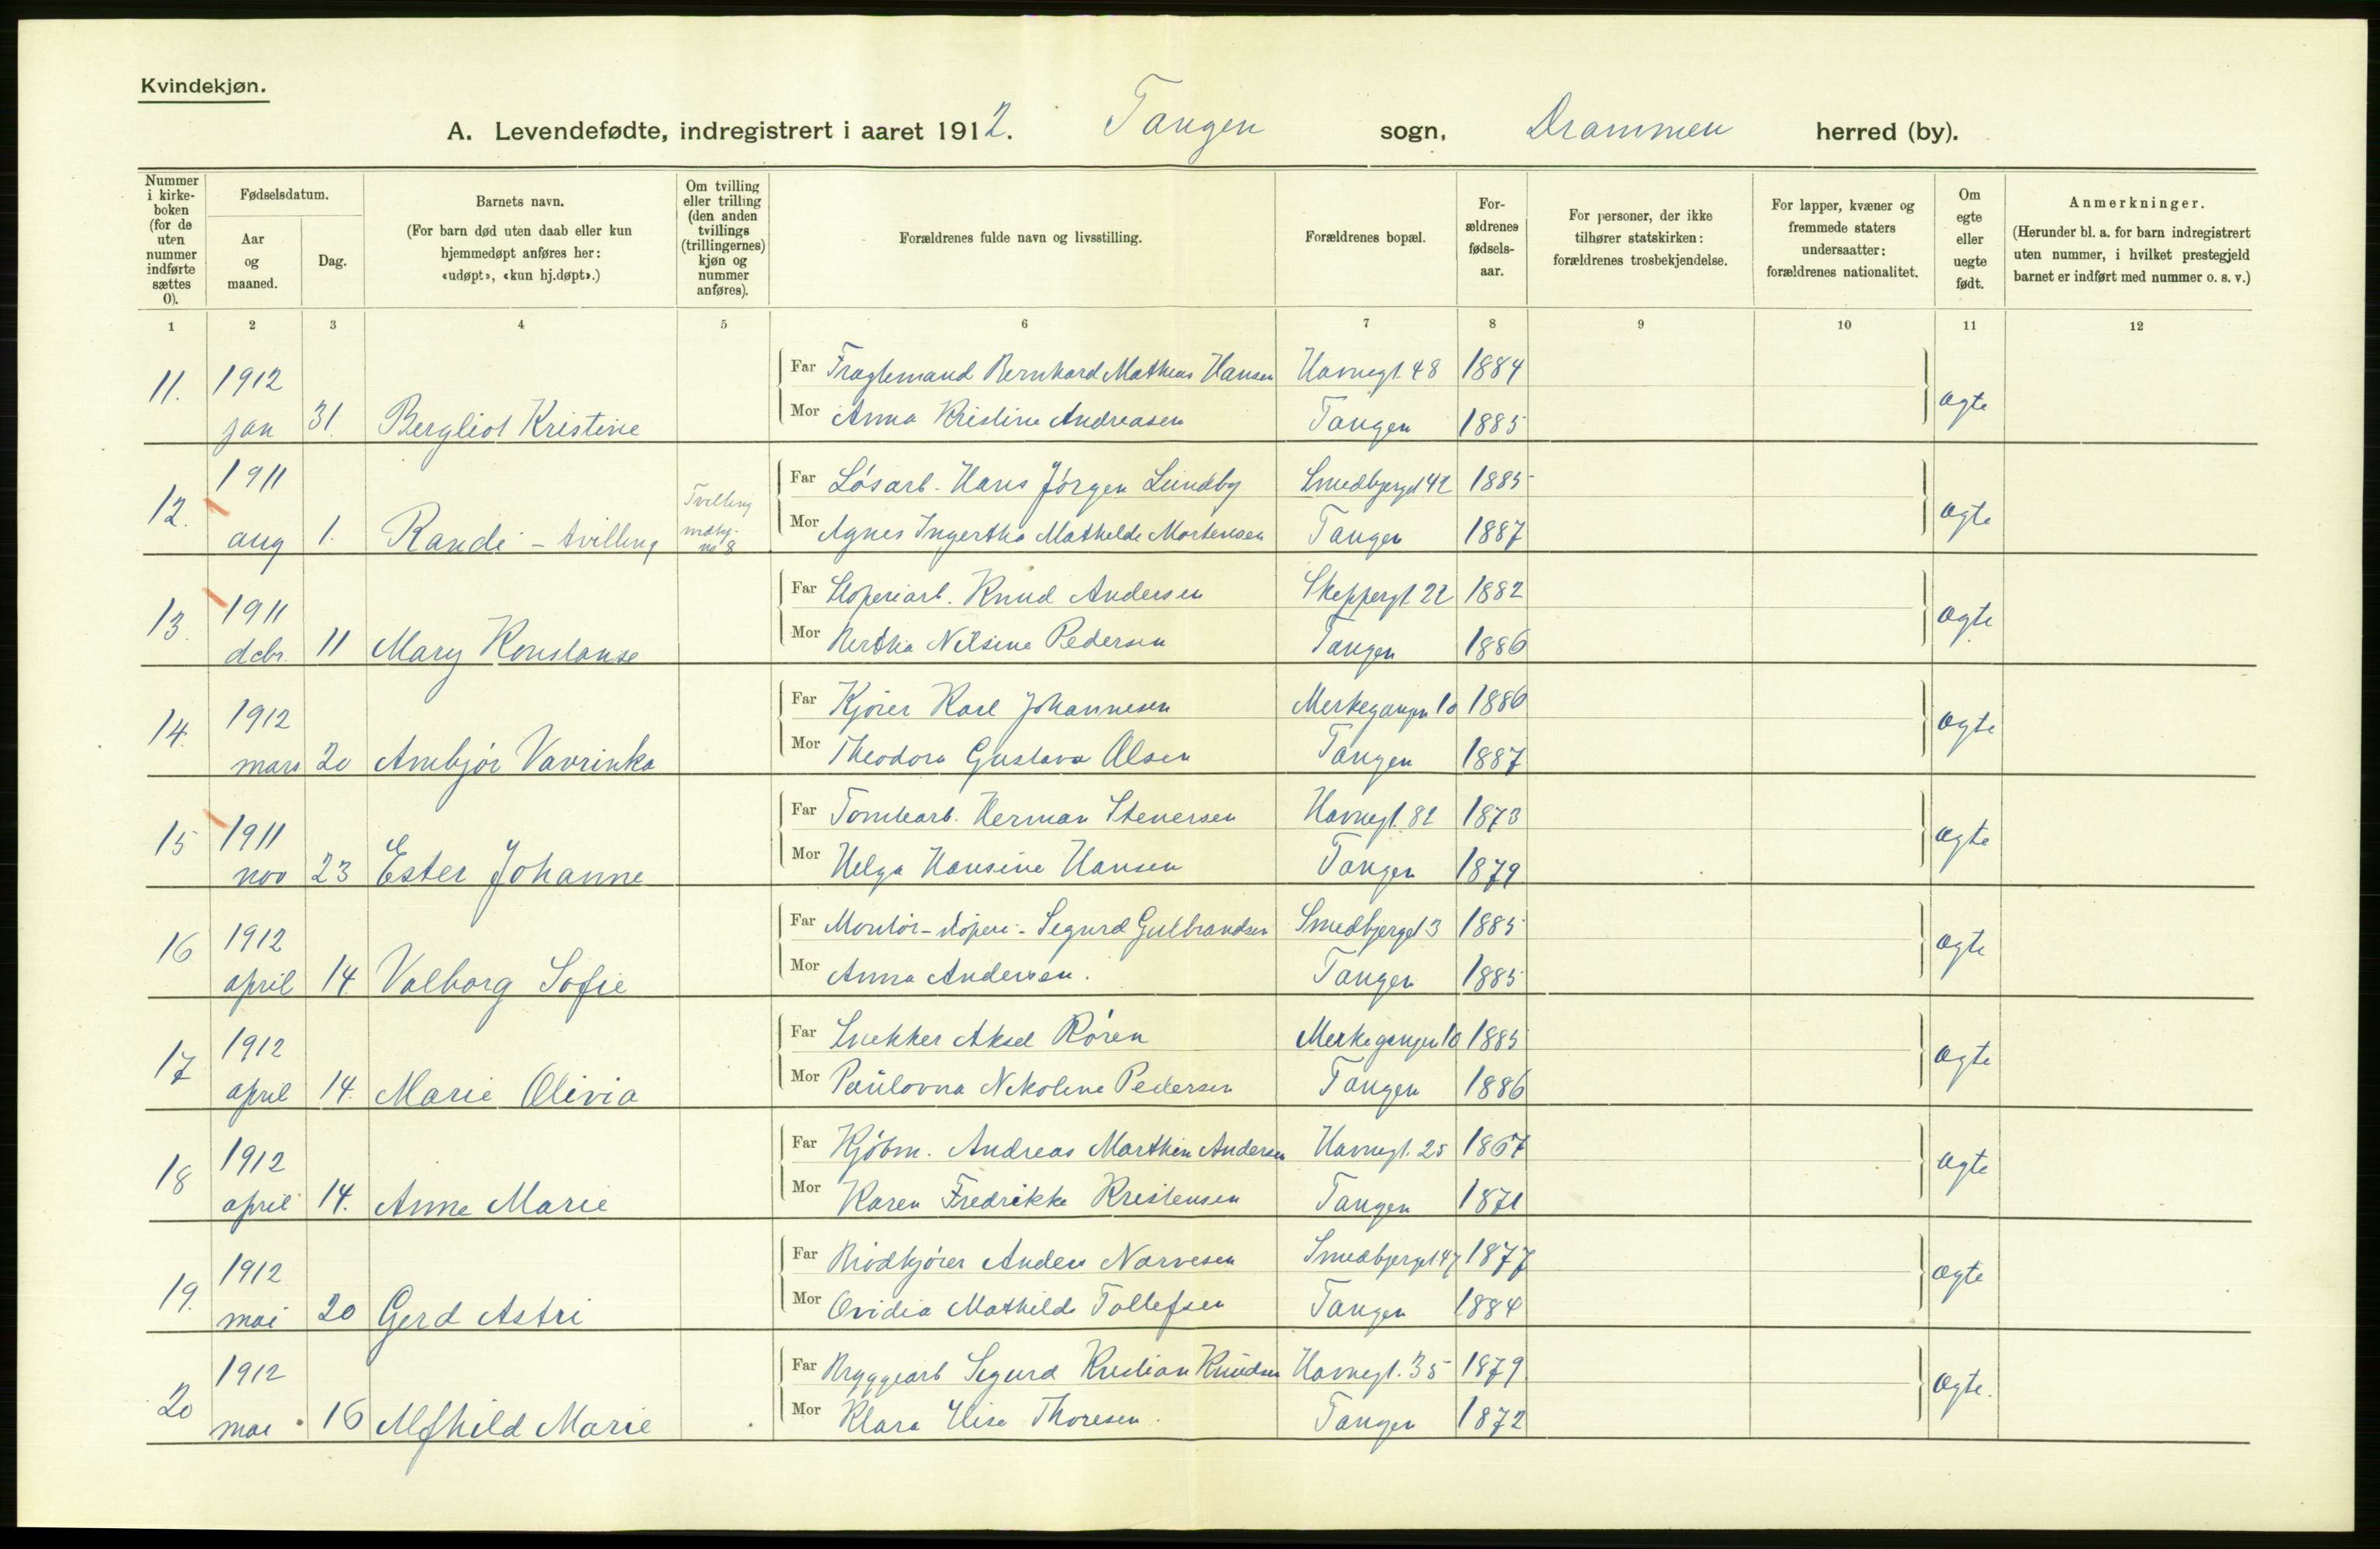 Kvindekjøn.
A. Levendefødte, indregistrert i aaret 1912. Tangen sogn, Drammen herred (by).
Nummer i kirke-boken (for de uten nummer indførte sættes 0).
Fødselsdatum.
Aar og maaned.
Dag.
Barnets navn.
(For barn død uten daab eller kun hjemmedøpt anføres her: «udøpt», «kun hj.døpt».)
Om tvilling eller trilling (den anden tvillings (trillingernes) kjøn og nummer anføres).
Forældrenes fulde navn og livsstilling.
Forældrenes bopæl.
For-ældrenes fødsels-aar.
For personer, der ikke tilhører statskirken: forældrenes trosbekjendelse.
For lapper, kvæner og fremmede staters undersaatter: forældrenes nationalitet.
Om egte eller uegte født.
Anmerkninger.
(Herunder bl. a. for barn indregistrert uten nummer, i hvilket prestegjeld barnet er indført med nummer o. s. v.)
1 2 3 4 5 6 7 8 9 10 11 12
11. 1912 Far Bernhard Mathias Hansen Havnegt. 48 1884
jan 31. Bergliot Kristine Mor Anna Kristine Andreasen Tangen 1885 ægte
12. 1911 Far Løsarb. Hans Jørgen Lundby Smedbjerget 42 1885
aug 1. Randi - tvilling Tvilling no 8 Mor Agnes Ingertha Mathilde Mortensen Tangen 1887 ægte
13. 1911 Far Knud Andersen Skeppergt. 22 1882
dcbr. 11 Mary Konstanse Mor Bertha Nilsine Pedersen Tangen 1886 ægte
14. 1912 Far Kjører Karl Johannesen Merkegangen 10 1886
mars 20 Arnbjør Vavrinka Mor Theodora Gustava Olsen Tangen 1887 ægte
15 1911 Far Tomtearb. Herman Stenersen Havnegt. 82 1873
nov 23 Ester Johanne Mor Helga Hansine Hansen Tangen 1879 ægte
16 1912 Far Montør - Sigurd Gulbrandsen Smedbjerget 3 1885
april 14. Valborg Sofie Mor Anna Andersen. Tangen 1885 ægte
17 1912 Far Snekker Aksel Røren Merkegangen 10 1885
april 14. Marie Olivia Mor Paulovna Nikoline Pedersen Tangen 1886 ægte
18 1912 Far Kjøbm. Andreas Marthin Andersen Havnegt. 25 1867
april 14. Anne Marie Mor Karen Fredrikke Kristensen Tangen 1871 ægte
19. 1912 Far Brødkjører Anders Narvesen Smedbjerget 47 1877
mai 20 Gerd Astri Mor Ovidia Mathilde Tollefsen Tangen 1884 ægte
20 1912 Far Bryggearb Sigurd Kristian Knudsen Havnegt. 35 1879
mai 16 Alfhild Marie Mor Klara Elise Thoresen. Tangen 1872 ægte.